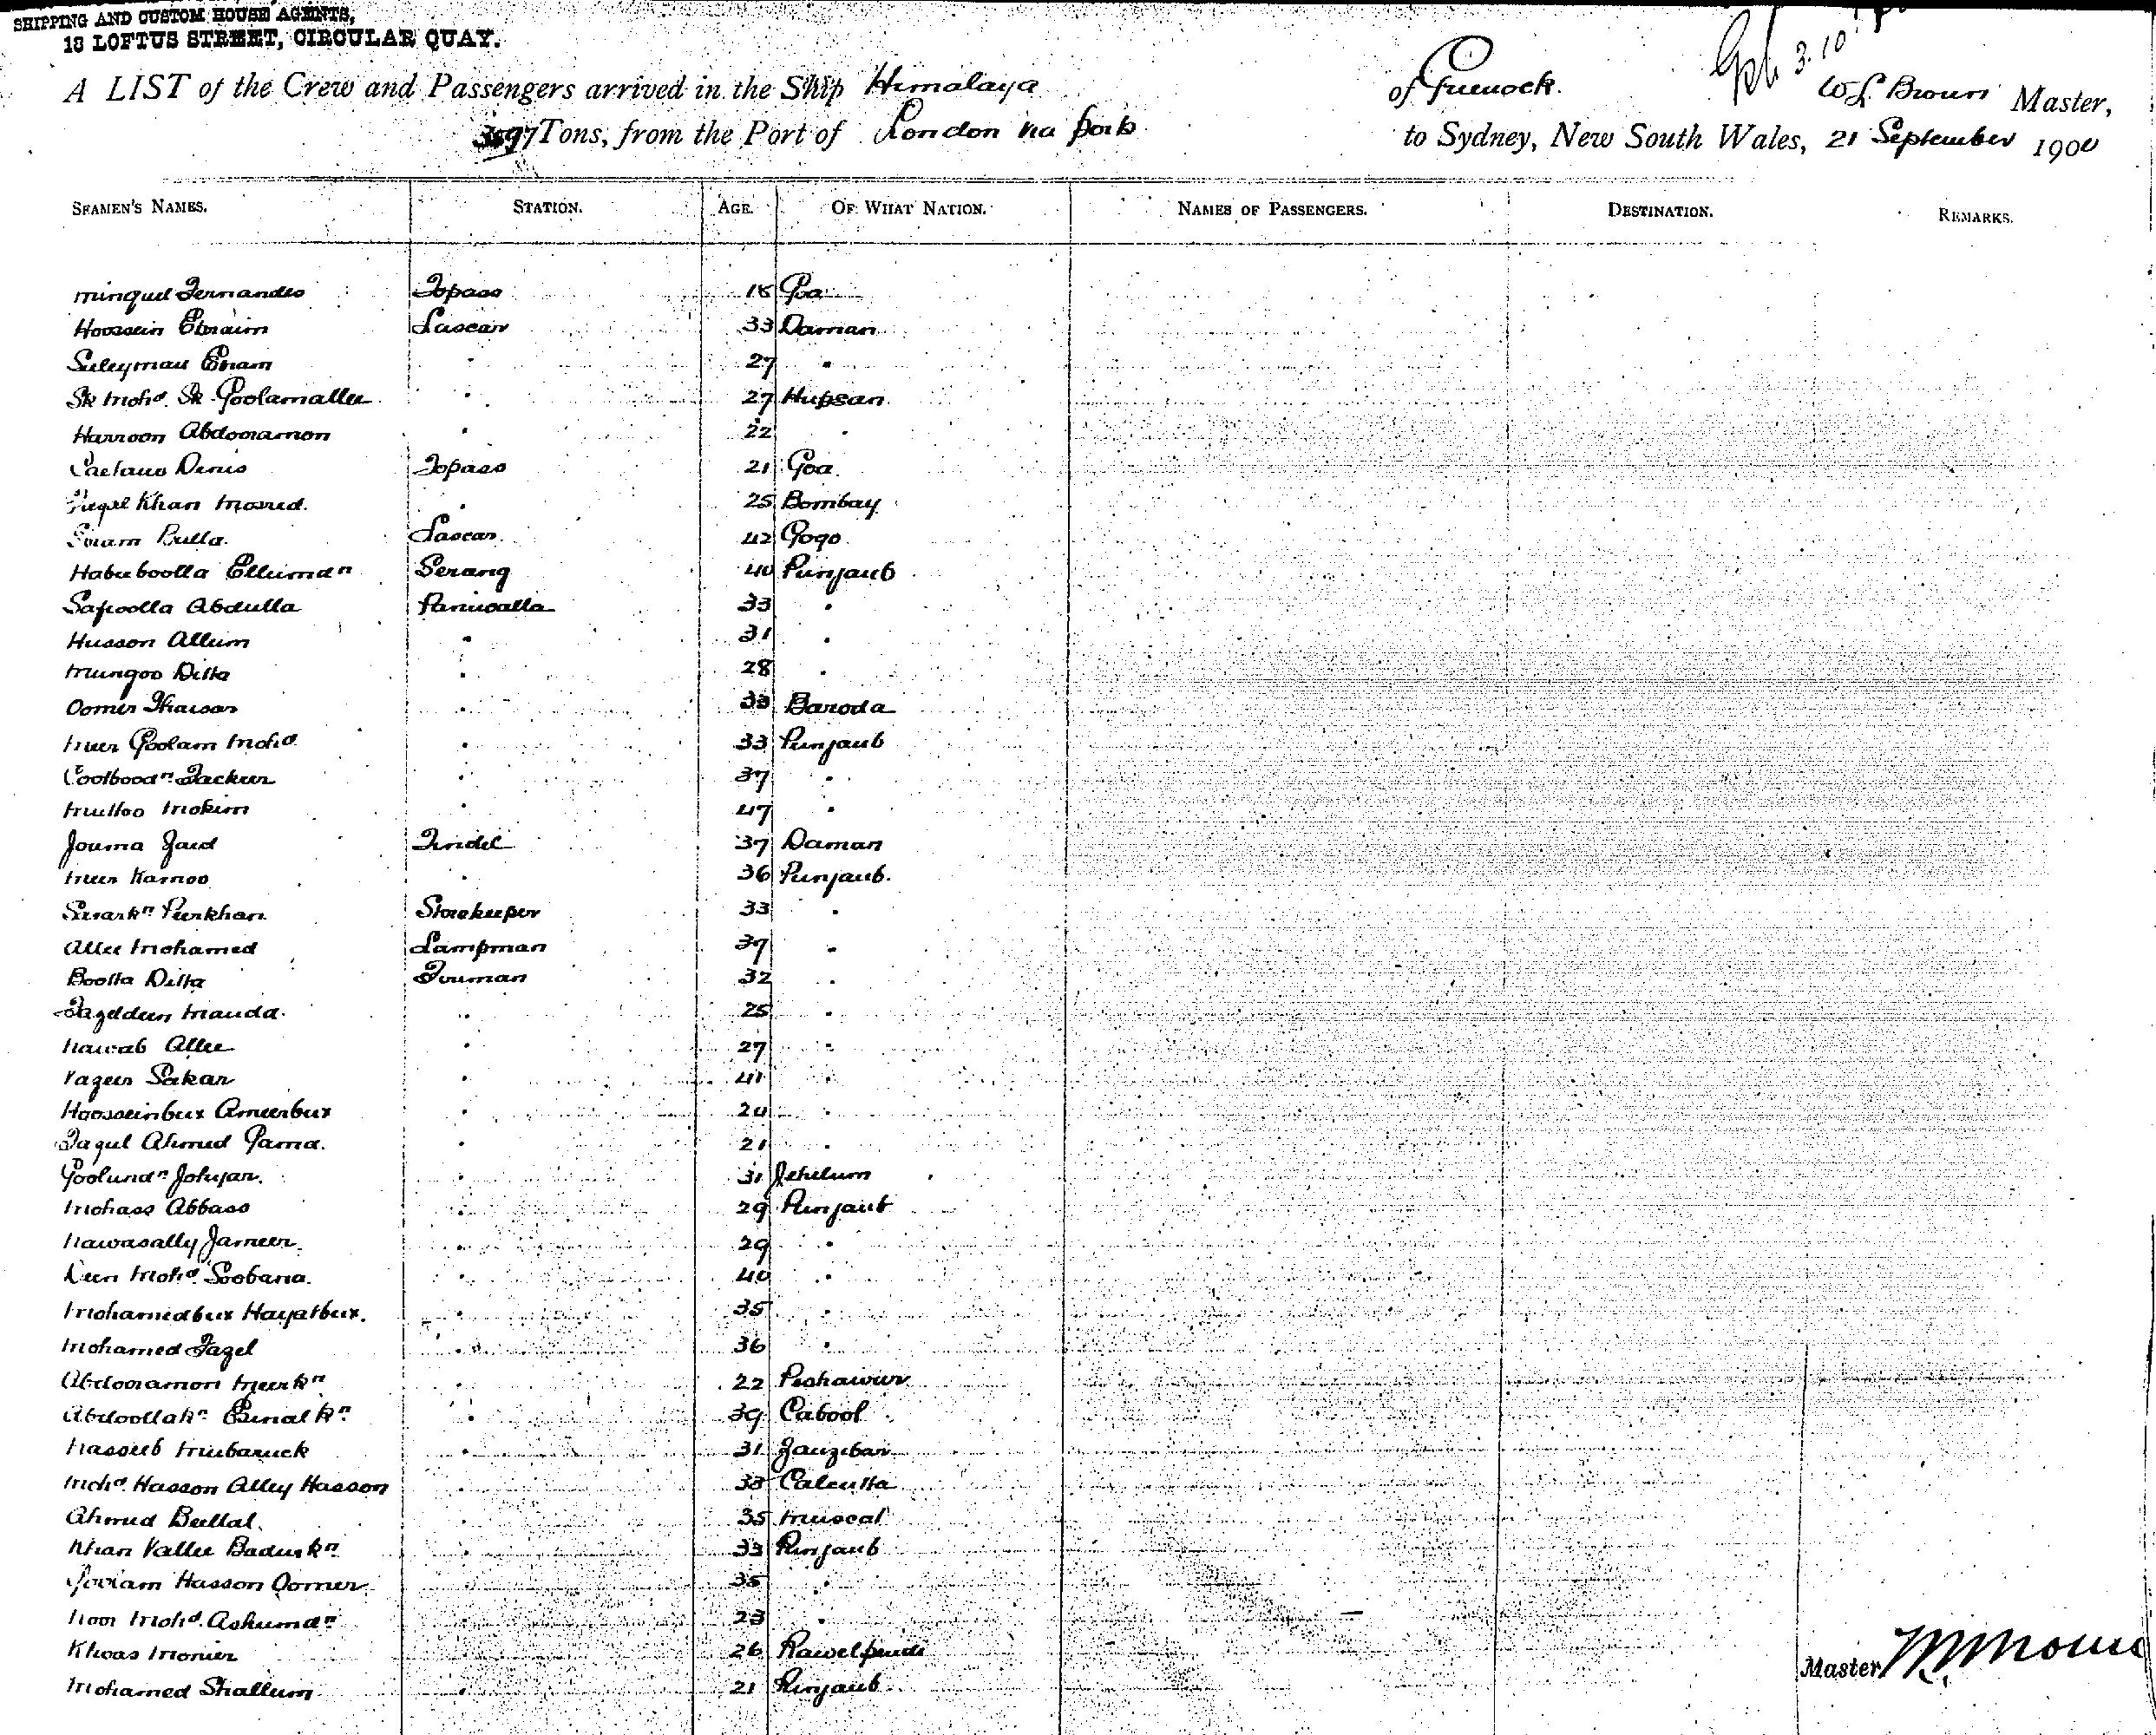 SHIPPING AND CUSTOM HOUSE AGENTS,
13 LOFTUS STREET, CIRCULAR QUAY.
A LIST of the Crew and Passengers arrived in the Ship Himalaya of Greenock. W L Brown Master,
Tons, from the Port of London via ports to Sydney, New South Wales, 21 September 1900
SEAMEN'S NAMES. STATION. AGE. OF WHAT NATION. NAMES OF PASSENGERS. DESTINATION. REMARKS.
Minguel Fernandes Topass 18 Goa
Hoossein Ebraim Lascar 33 Daman
Suleyman Esram " 27 "
Sk Mohd. Sk Goolamallee " 27 Hupsan
Harroon Abdoramon " 22 "
Caetano Denis Topass 21 Goa
Khan " 25 Bombay
Lascar 42 Gogo
Habuboolla Serang 40 Punjaub
Safoolla Abdulla Paniwalla 33 "
Husson Allum " 31 "
Mungoo Ditta " 28 "
Oomer " 33 Baroda
Meer Goolam Mohd " 33 Punjaub
" 37 "
" 47 "
Jouma Zaid Tindel 37 Daman
Meer Karnoo " 36 Punjaub.
Storekeeper 33 "
Allee Mohamed Lampman 37 "
Bootta Ditta Fireman 32 "
Fazeldeen Mauda. " 25 "
Nawab Allee " 27 "
Vazeer " 41 "
Hoosseinbux Ameerbux " 20 "
Fazul Ahmed Gama. " 21 "
" 31 Jehilum
Abbass " 29 Punjaub
Nawasally Jameer. " 29 "
Deen Mohd. Soobana. " 40 "
Mohamedbux Hayatbux. " 35 "
Mohamed Fazel " 36 "
Abdoramon Meerkn " 22 Peshawur
Abdoollakn. " 39 Cabool
Nasseeb Mubaruck " 31 Zanzibar
Mohd Hasson Alley Hasson " 33 Calcutta
Ahmed Bellal. " 35 Muscat
Khan Vallee " 33 Punjaub
Hasson Oomer " 35 "
Noor Mohd. " 23 "
Khwas " 26 Rawelpindi
Mohamed Shallum " 21 Punjaub
Master